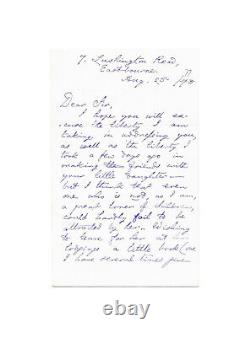 7, Lushington Road,
Eastbourne.
Aug. 25
Dear Sir,
I hope you will ex-
cuse the liberty I am
taking in addressing you,
as well as the liberty I
took a few days ago in
making them friends with
your little daughter —
but I think that even
one who is not, as I am,
a great lover of children,
could hardly fail to be
attracted by her. Wishing
to leave for her at her
lodgings a little book (one
I have several times given
ebay